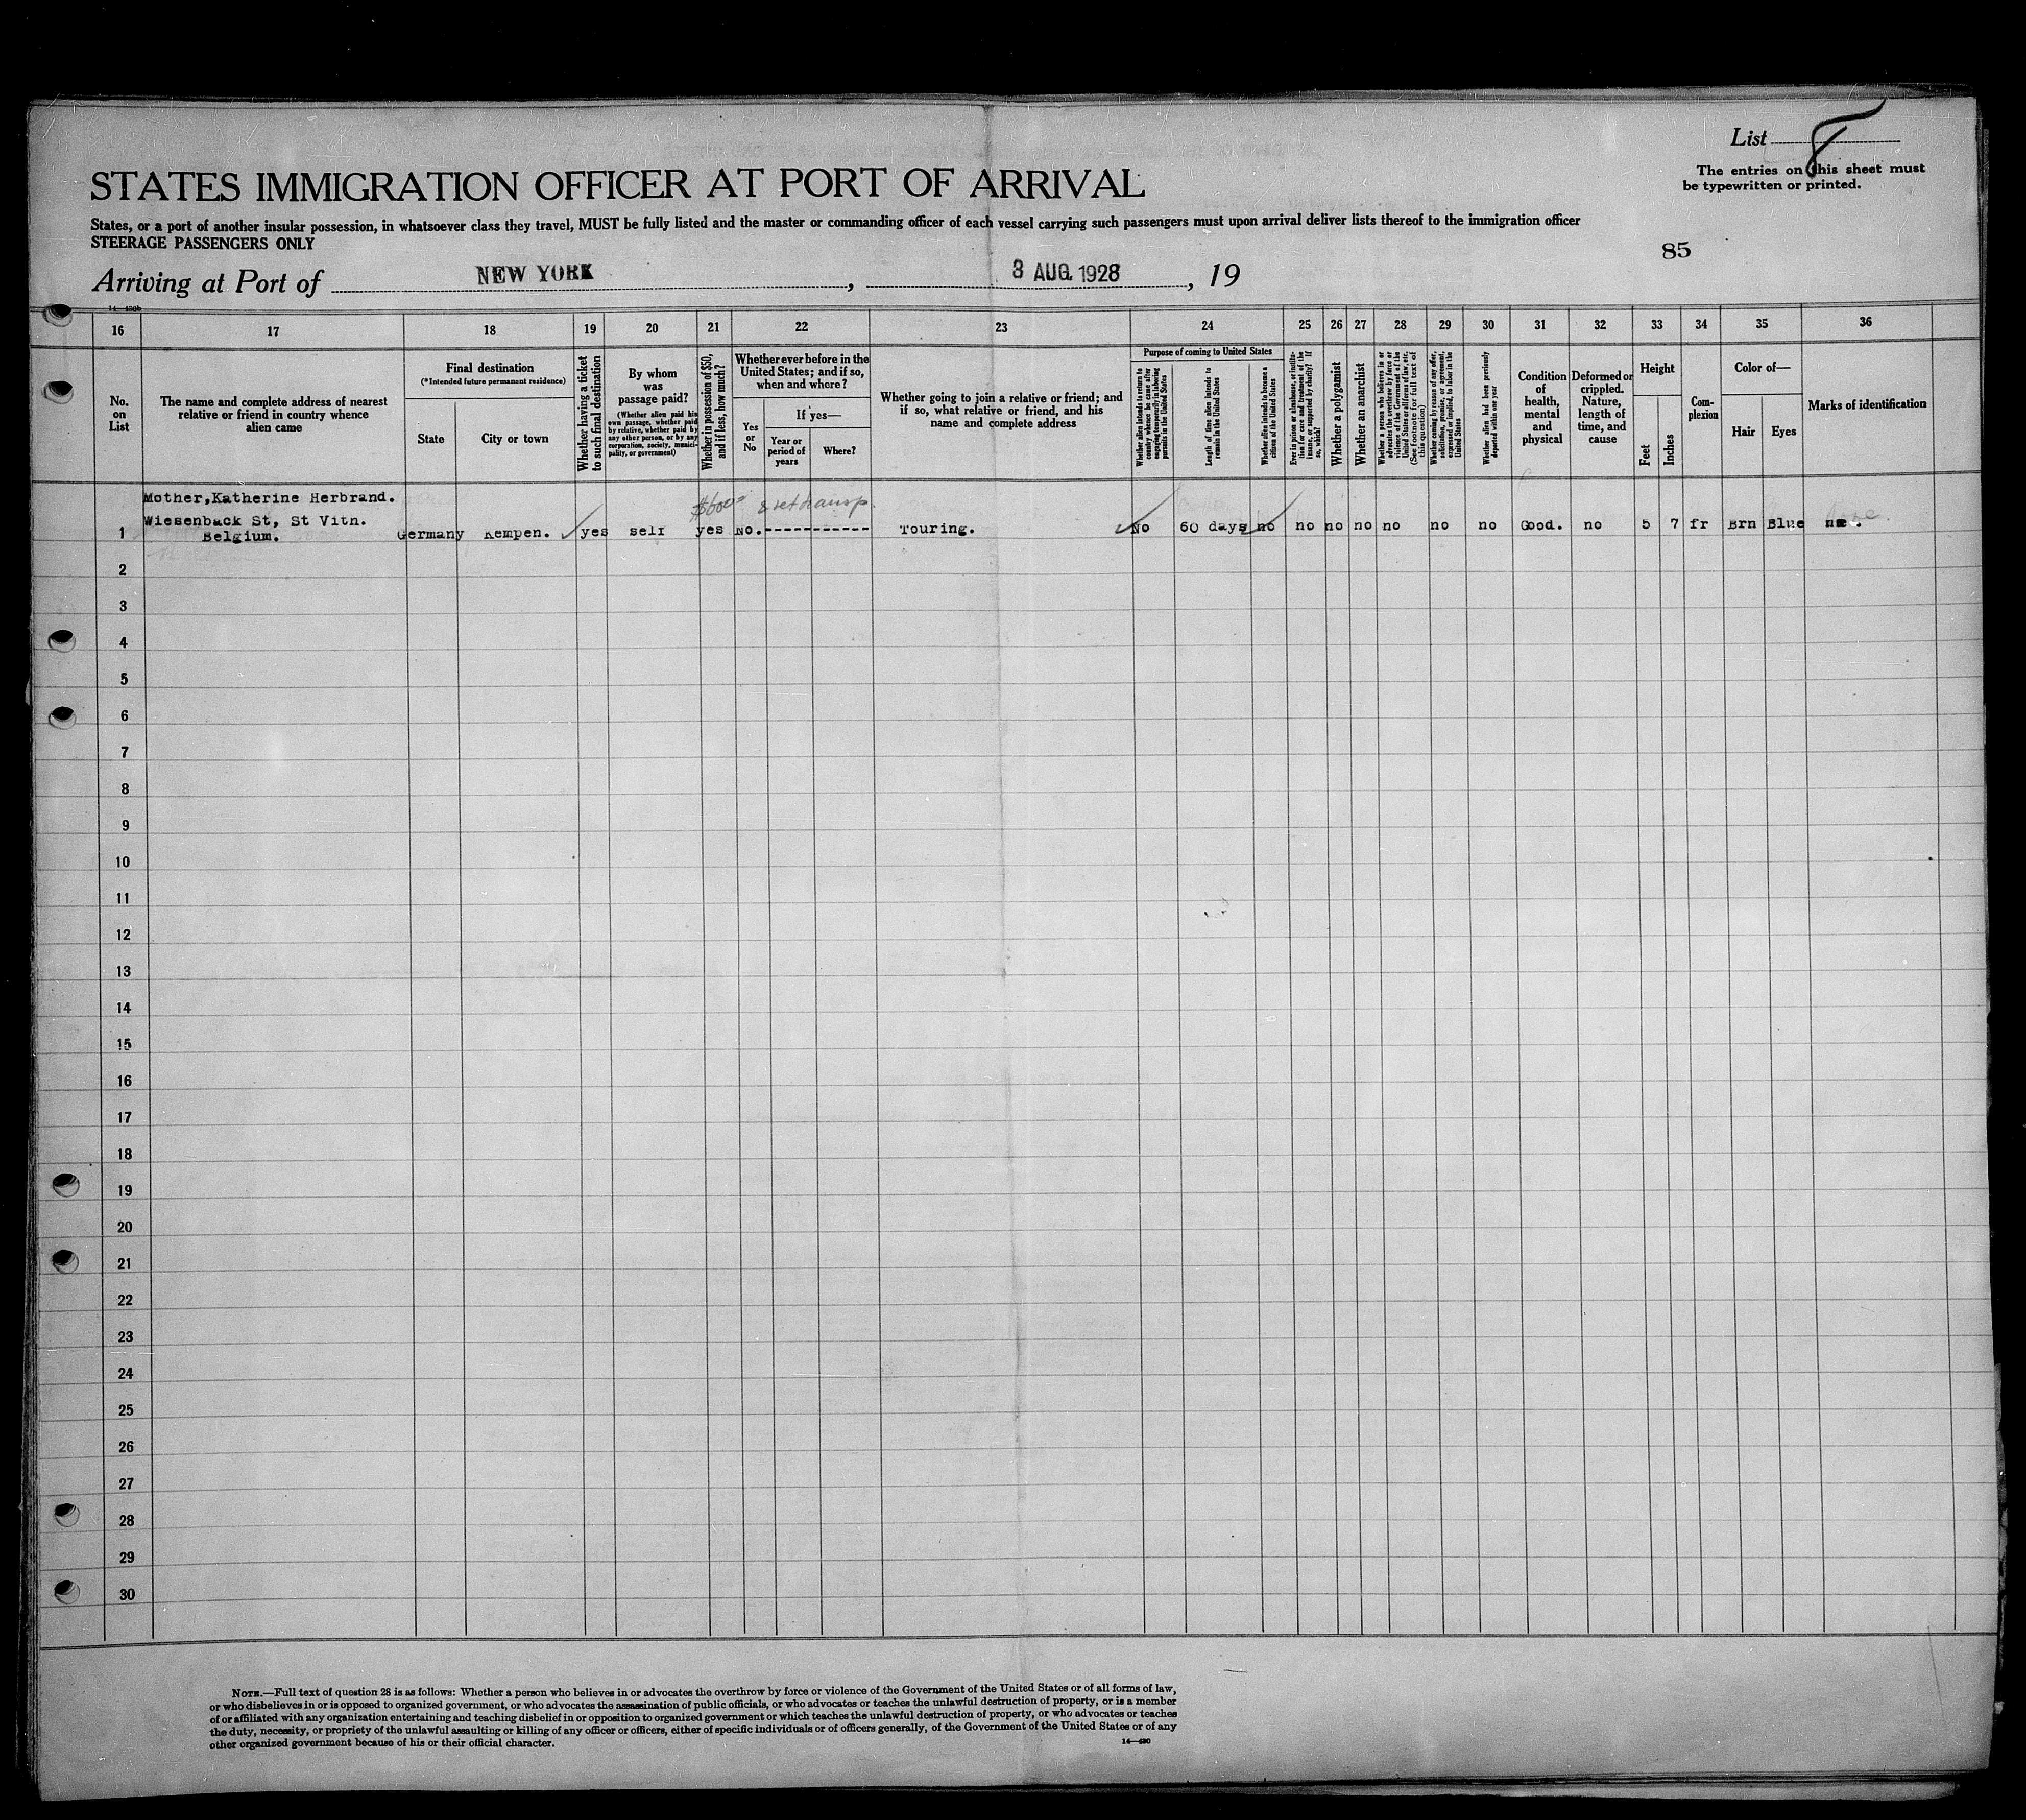 List 8
The entries on this sheet must
be typewritten or printed.
STATES IMMIGRATION OFFICER AT PORT OF ARRIVAL
States, or a port of another insular possession, in whatsoever class they travel, MUST be fully listed and the master or commanding officer of each vessel carrying such passengers must upon arrival deliver lists thereof to the immigration officer
STEERAGE PASSENGERS ONLY
85
Arriving at Port of NEW YORK, 8 AUG. 1928, 19
14—430b
16 17 18 19 20 21 22 23 24 25 26 27 28 29 30 31 32 33 34 35 36
No.
on
List
The name and complete address of nearest
relative or friend in country whence
alien came
Final destination
(*Intended future permanent residence)
State
City or town
Whether having a ticket
to such final destination
By whom
was
passage paid?
(Whether alien paid his
own passage, whether paid
by relative, whether paid by
any other person, or by any
corporation, society, munici-
pality, or government)
Whether in possession of $50,
and if less, how much?
Whether ever before in the
United States; and if so,
when and where?
Yes
or
No
If yes—
Year or
period of
years
Where?
Whether going to join a relative or friend; and
if so, what relative or friend, and his
name and complete address
Purpose of coming to United States
Whether alien intends to return to
country whence he came after
engaging temporarily in laboring
pursuits in the United States
Length of time alien intends to
remain in the United States
Whether alien intends to become a
citizen of the United States
Ever in prison or almshouse, or institu-
tion for care and treatment of the
insane, or supported by charity? If
so, which?
Whether a polygamist
Whether an anarchist
Whether a person who believes in or
advocates the overthrow by force or
violence of the Government of the
United States or all forms of law, etc.
(See footnote for full text of
this question)
Whether coming by reason of any offer,
solicitation, promise, or agreement,
expressed or implied, to labor in the
United States
Whether alien had been previously
deported within one year
Condition
of
health,
mental
and
physical
Deformed or
crippled.
Nature,
length of
time, and
cause
Height
Feet
Inches
Com-
plexion
Color of—
Hair
Eyes
Marks of identification
$600 & ret transp.
Mother,Katherine Herbrand.
Wiesenback St, St Vitn.
Belgium.
1 Germany Kempen. yes self yes No.----------- Touring. No 60 days no no no no no no no Good. no 5 7 fr Brn Blue
2
3
4
5
6
7
8
9
10
11
12
13
14
15
16
17
18
19
20
21
22
23
24
25
26
27
28
29
30
NOTE.—Full text of question 28 is as follows: Whether a person who believes in or advocates the overthrow by force or violence of the Government of the United States or of all forms of law,
or who disbelieves in or is opposed to organized government, or who advocates the assassination of public officials, or who advocates or teaches the unlawful destruction of property, or is a member
of or affiliated with any organization entertaining and teaching disbelief in or opposition to organized government or which teaches the unlawful destruction of property, or who advocates or teaches
the duty, necessity, or propriety of the unlawful assaulting or killing of any officer or officers, either of specific individuals or of officers generally, of the Government of the United States or of any
other organized government because of his or their official character.
14—430